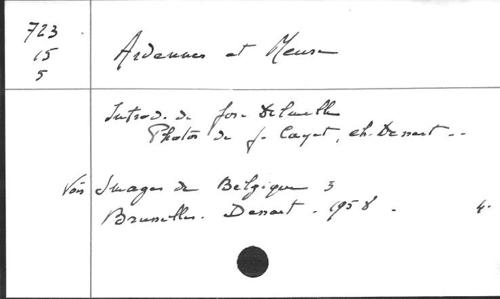 723
15
5
Ardennes et Meuse
Introd. de Jos. Delmelle
Photos de J. Cayet, Ch. Dessart --
Voir Images de Belgique 3
Bruxelles. Dessart. 1958. 4.